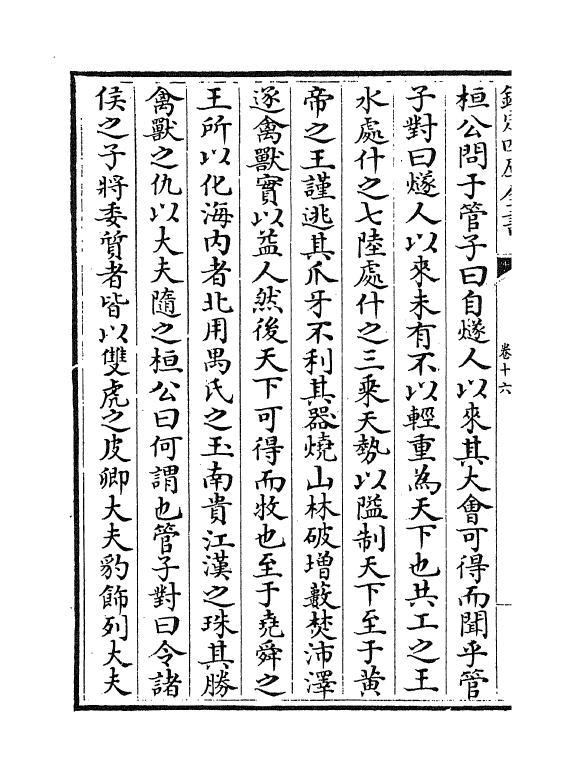 欽定四庫全書
卷十六
桓公問于管子曰自燧人以來其大會可得而聞乎管
子對曰燧人以來未有不以輕重為天下也共工之王
水處什之七陸處什之三乘天勢以隘制天下至于黄
帝之王謹逃其爪牙不利其器燒山林破增藪焚沛澤
逐禽獸實以益人然後天下可得而牧也至于堯舜之
王所以化海内者北用禺氏之玉南貴江漢之珠其勝
禽獸之仇以大夫隨之桓公曰何謂也管子對曰令諸
侯之子將委質者皆以雙虎之皮卿大夫豹飾列大夫